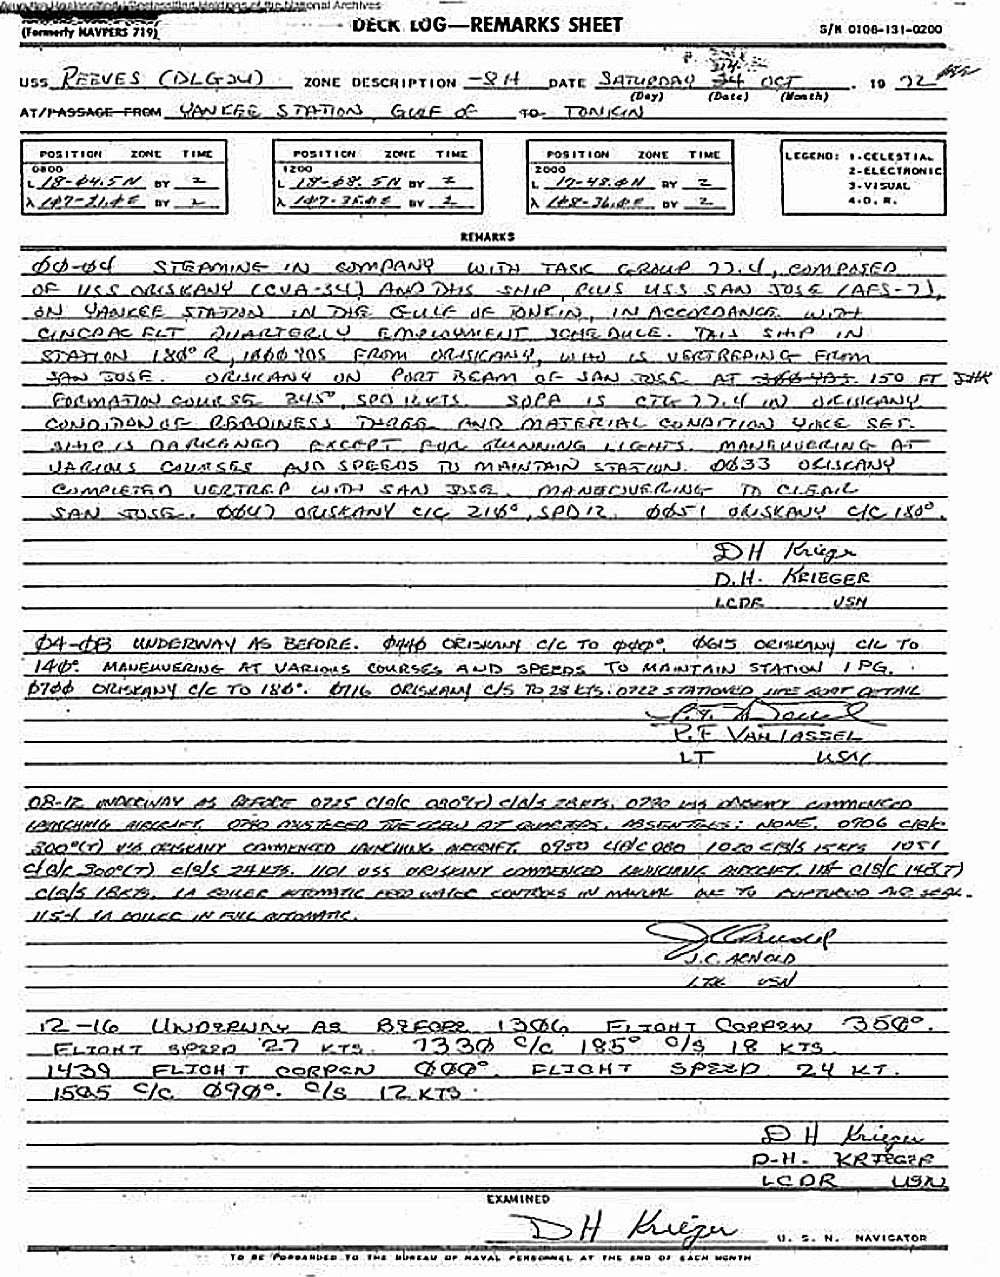 National Archives
DECK LOG—REMARKS SHEET
(Formerly NAVPERS 719)
S/N 0108-131-0200
USS REEVES (DLG24) ZONE DESCRIPTION -8H DATE SATURDAY OCT 1972
(Day) (Date) (Month)
AT/PASSAGE FROM YANKEE STATION, GULF OF TO TONKIN
POSITION ZONE TIME POSITION ZONE TIME POSITION ZONE TIME LEGEND: 1-CELESTIAL
0800 1200 2000 2-ELECTRONIC
L 18-04.5N BY 2 L 18-08.5N BY 2 L 17-48.0N BY 2 3-VISUAL
λ 107-21.0E BY 2 λ 107-35.0E BY 2 λ 108-36.0E BY 2 4-D.R.
REMARKS
00-04 STEAMING IN COMPANY WITH TASK GROUP 77.4, COMPOSED
OF USS ORISKANY (CVA-34) AND THIS SHIP, PLUS USS SAN JOSE (AFS-7),
ON YANKEE STATION IN THE GULF OF TONKIN, IN ACCORDANCE WITH
CINCPACFLT QUARTERLY EMPLOYMENT SCHEDULE. THIS SHIP IN
STATION 180°R, 1000 YDS FROM ORISKANY, WHO IS VERTREPING FROM
SAN JOSE. ORISKANY ON PORT BEAM OF SAN JOSE AT 150 FT
FORMATION COURSE 345°, SPD 12 KTS. SOPA IS CTG 77.4 IN ORISKANY
CONDITION OF READINESS THREE AND MATERIAL CONDITION YOKE SET.
SHIP IS DARKENED EXCEPT FOR RUNNING LIGHTS. MANEUVERING AT
VARIOUS COURSES AND SPEEDS TO MAINTAIN STATION. 0033 ORISKANY
COMPLETED VERTREP WITH SAN JOSE. MANEUVERING TO CLEAR
SAN JOSE. 0047 ORISKANY C/C 210°, SPD 12. 0051 ORISKANY C/C 180°.
DH Krieger
D.H. KRIEGER
LCDR USN
04-08 UNDERWAY AS BEFORE. 0440 ORISKANY C/C TO 000°. 0615 ORISKANY C/C TO
140°. MANEUVERING AT VARIOUS COURSES AND SPEEDS TO MAINTAIN STATION 1 PG.
0700 ORISKANY C/C TO 180°. 0716 ORISKANY C/S TO 28 KTS. 0722 STATIONED LIFE BOAT DETAIL
P.F. VAN TASSEL
LT USN
08-12 UNDERWAY AS BEFORE 0725 C/B/C 080°(T) C/B/S 28 KTS. 0730 USS ORISKANY COMMENCED
LAUNCHING AIRCRAFT. 0740 MUSTERED THE CREW AT QUARTERS. ABSENTEES: NONE. 0906 C/B/C
300°(T) USS ORISKANY COMMENCED LAUNCHING AIRCRAFT. 0950 C/B/C 080 1020 C/B/S 15 KTS 1051
C/B/C 300°(T) C/B/S 24 KTS. 1101 USS ORISKANY COMMENCED LAUNCHING AIRCRAFT. C/B/C 140(T)
C/B/S 18 KTS. 1A BOILER AUTOMATIC FEED WATER CONTROLS IN MANUAL DUE TO RUPTURED AIR SEAL.
1154 1A BOILER IN FULL AUTOMATIC.
J.C. ARNOLD
USN
12-16 UNDERWAY AS BEFORE 1306 FLIGHT CORPEN 350°.
FLIGHT SPEED 27 KTS. 1330 C/C 185° C/S 18 KTS
1439 FLIGHT CORPEN 000°. FLIGHT SPEED 24 KT.
1505 C/C 090°. C/S 12 KTS.
DH Krieger
D.H. KRIEGER
LCDR USN
EXAMINED
DH Krieger U. S. N. NAVIGATOR
TO BE FORWARDED TO THE BUREAU OF NAVAL PERSONNEL AT THE END OF EACH MONTH